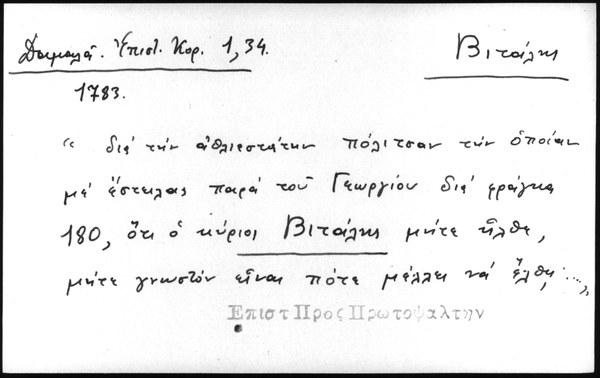 Δαμαλᾶ. Ἐπιστ. Κορ. 1,34. Βιτάλης
1783.
“ διὰ τὴν ἀθλιεστάτην πόλιτσαν τὴν ὁποίαν
μὲ ἔστειλας παρὰ τοῦ Γεωργίου διὰ φράγκα
180, ὅτι ὁ κύριος Βιτάλης μήτε ἦλθε,
μήτε γνωστὸν εἶναι πότε μέλλει νὰ ἔλθῃ....„
Επιστ Προς Πρωτοψαλτην